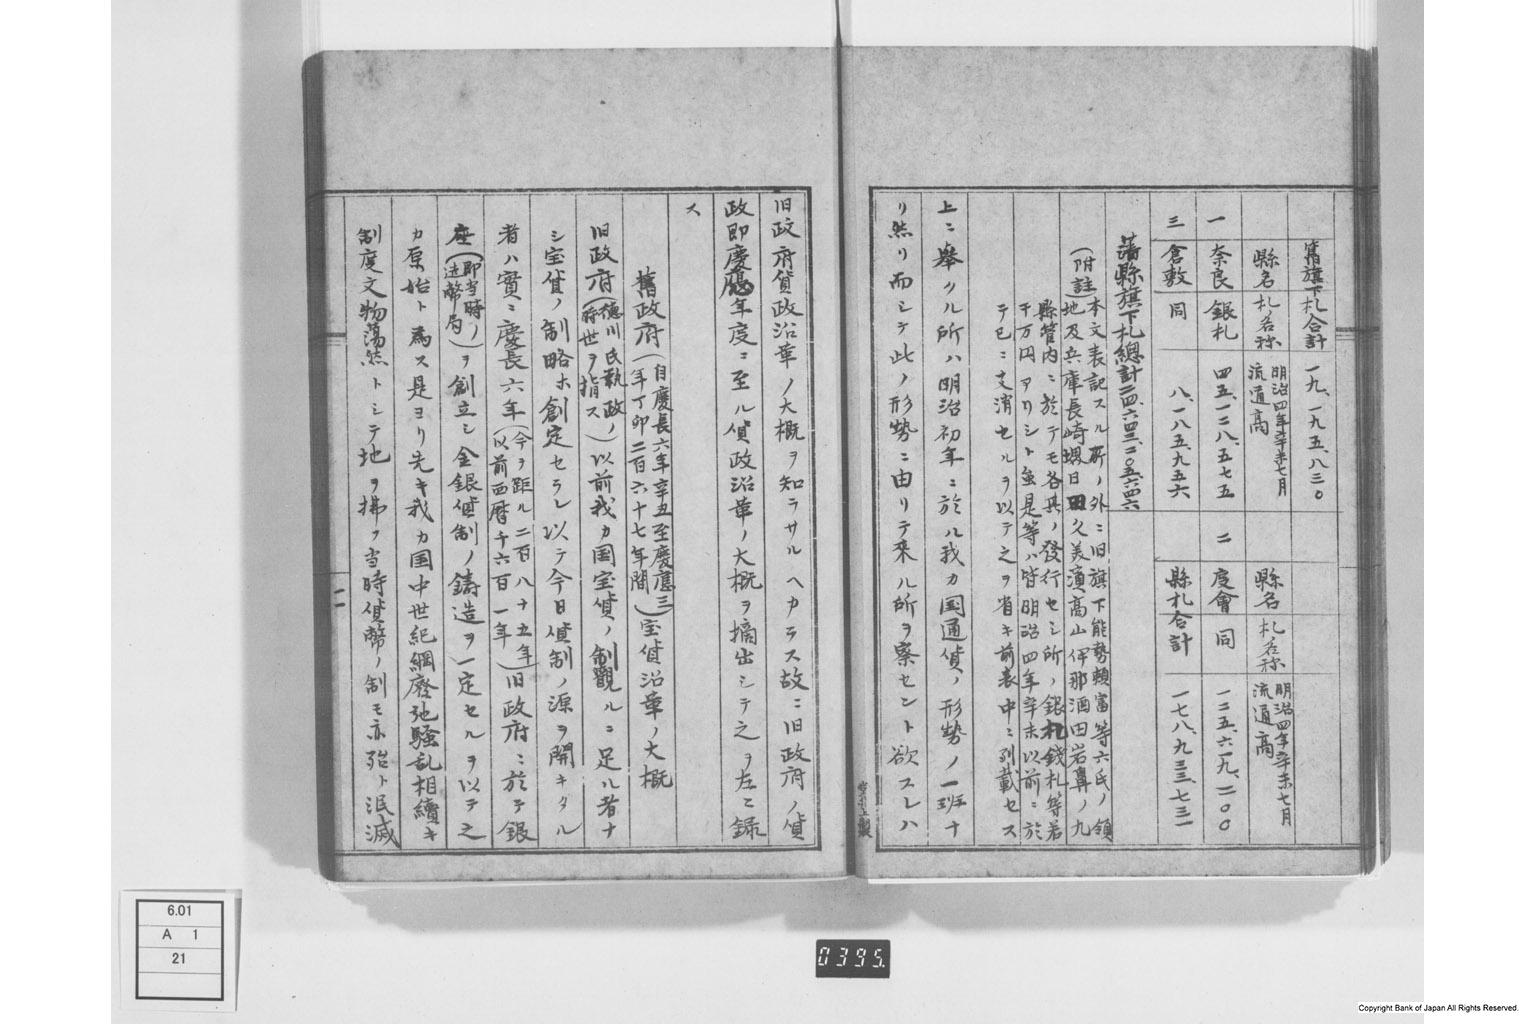 舊旗下札合計 一九、一九五、八三〇
縣名 札名称 明治四年辛未七月流通高 縣名 札名称 明治四年辛未七月流通高
一 奈良 銀札 四五、一二八、五七五 二 度會 同 一二五、六一九、二〇〇
三 倉敷 同 八、一八五、九五六 縣札合計 一七八、九三三、七三一
藩縣旗下札總計二四、六四三、二〇五、六四六
(附註)本文表記スル所ノ外ニ旧旗下能勢頼富等六氏ノ領
地及兵庫長崎堺日田久美濱高山伊那酒田岩鼻ノ九
縣管内ニ於テモ各其ノ發行セシ所ノ銀札錢札等若
干万円アリシト虽是等ハ皆明治四年辛未以前ニ於
テ已ニ支消セルヲ以テ之ヲ省キ前表中ニ列載セス
上ニ舉クル所ハ明治初年ニ於ル我カ国通貨ノ形勢ノ一班ナ
リ然リ而シテ此ノ形勢ニ由リテ來ル所ヲ察セント欲スレハ
旧政府貨政沿革ノ大概ヲ知ラサルヘカラス故ニ旧政府ノ貨
政即慶應年度ニ至ル貨政沿革ノ大概ヲ摘出シテ之ヲ左ニ録
ス
舊政府(自慶長六年辛丑至慶應三年丁卯二百六十七年間)宝貨沿革ノ大概
旧政府(德川氏執政ノ時世ヲ指ス)以前我カ国宝貨ノ制觀ルニ足ル者ナ
シ宝貨ノ制略ホ創定セラレ以テ今日貨制ノ源ヲ開キタル
者ハ實ニ慶長六年(今ヲ距ル二百八十五年以前西暦千六百一年)旧政府ニ於テ銀
座(即当時ノ造幣局)ヲ創立シ金銀貨制ノ鋳造ヲ一定セルヲ以テ之
カ原始ト為ス是ヨリ先キ我カ国中世紀綱廢弛騒乱相續キ
制度文物蕩然トシテ地ヲ拂フ当時貨幣ノ制モ亦殆ト泯滅
二
6.01
A 1
21
0395
Copyright Bank of Japan All Rights Reserved.